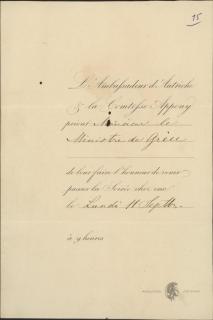 15
L'Ambassadeur d'Autriche
& la Comtesse Appony
prient Monsieur le
Ministre de Grèce
de leur faire l'honneur de venir
passer la Soirée chez eux
le Lundi 11 Septbr.
à 9 heures